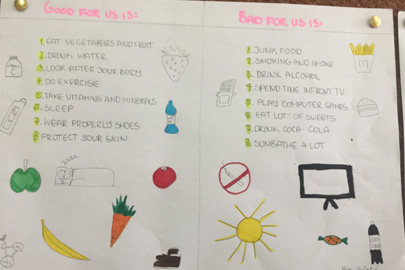 GOOD FOR US IS:
1. EAT VEGETABLES AND FRUIT
2. DRINK WATER
3. LOOK AFTER YOUR BODY
4. DO EXERCISE
5. TAKE VITAMINS AND MINERALS
6. SLEEP
7. WEAR PROPERLY SHOES
8. PROTECT YOUR SKIN
BAD FOR US IS:
1. JUNK FOOD
2. SMOKING AND SMOKE
3. DRINK ALCOHOL
4. SPEND TIME INFRONT TV
5. PLAY COMPUTER GAMES
6. EAT LOT OF SWEETS
7. DRINK COCA-COLA
8. SUNBATHE A LOT